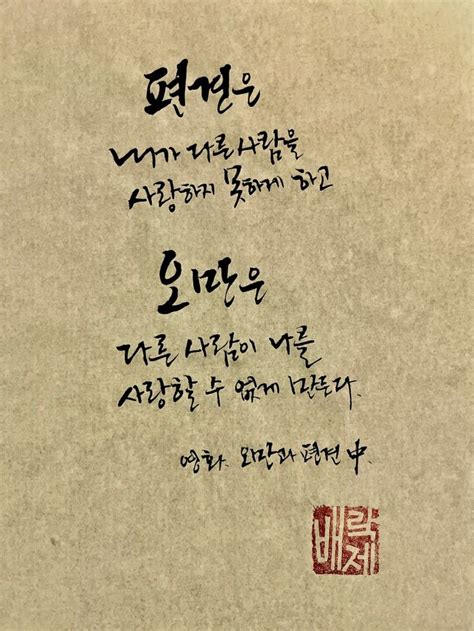 편견은
내가 다른 사람을
사랑하지 못하게 하고
오만은
다른 사람이 나를
사랑할 수 없게 만든다.
영화. 오만과 편견 中.
배락제